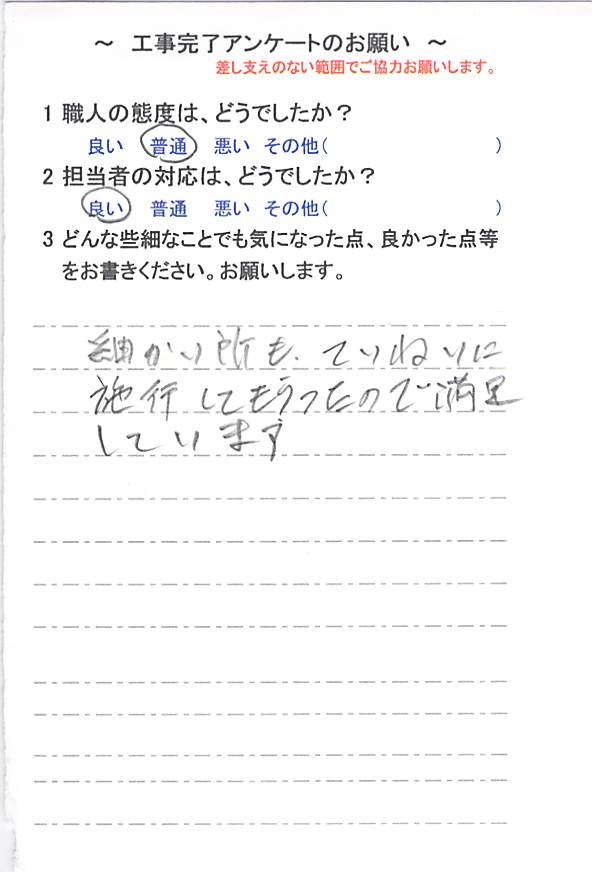 ～ 工事完了アンケートのお願い ～
差し支えのない範囲でご協力お願いします。
1 職人の態度は、どうでしたか？
良い 普通 悪い その他( )
2 担当者の対応は、どうでしたか？
良い 普通 悪い その他( )
3 どんな些細なことでも気になった点、良かった点等
をお書きください。お願いします。
細かい所も、ていねいに
施行してもらったので満足
しています